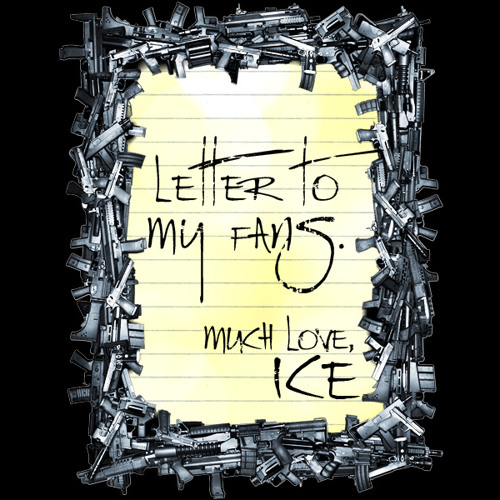 LETTER TO
MY FANS.
MUCH LOVE,
ICE